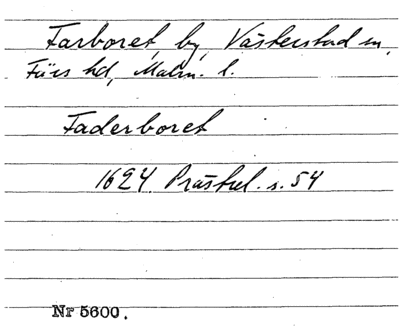 Farboret, by, Västerstad sn,
Färs hd, Malm. l.
Faderboret
1624 Prästrel. s. 54
Nr 5600.